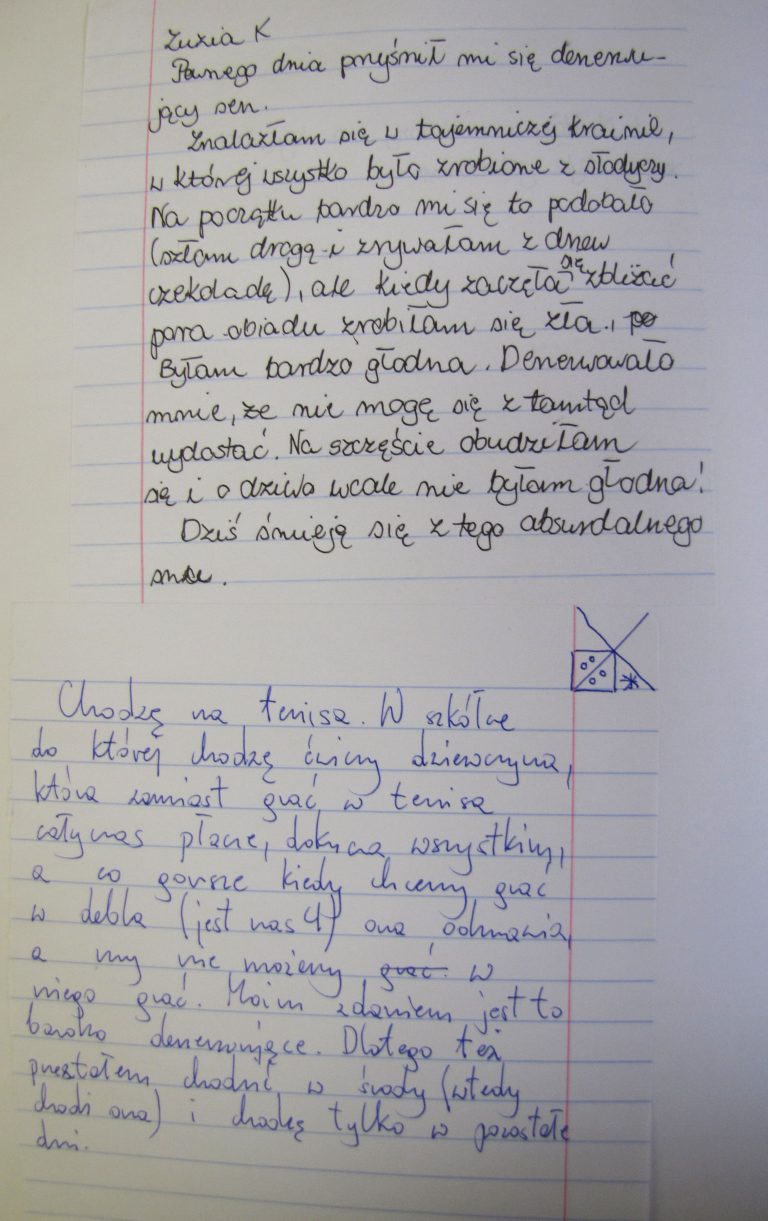 Zuzia K
Pewnego dnia przyśnił mi się denerwu-
jący sen.
Znalazłam się w tajemniczej krainie,
w której wszystko było zrobione z słodyczy.
Na początku bardzo mi się to podobało
(szłam drogą i zrywałam z drzew
czekoladę), ale kiedy zaczęła się zbliżać
pora obiadu zrobiłam się zła.
Byłam bardzo głodna. Denerwowało
mnie, że nie mogę się z tamtąd
wydostać. Na szczęście obudziłam
się i o dziwo wcale nie byłam głodna!
Dziś śmieję się z tego absurdalnego
snu.
Chodzę na tenisa. W szkółce
do której chodzę ćwiczy dziewczyna,
która zamiast grać w tenisa
cały czas płacze, dokucza wszystkim,
a co gorsze kiedy chcemy grać
w debla (jest nas 4) ona odmawia,
a my nie możemy grać w
niego grać. Moim zdaniem jest to
bardzo denerwujące. Dlatego też
przestałem chodzić w środy (wtedy
chodzi ona) i chodzę tylko w pozostałe
dni.